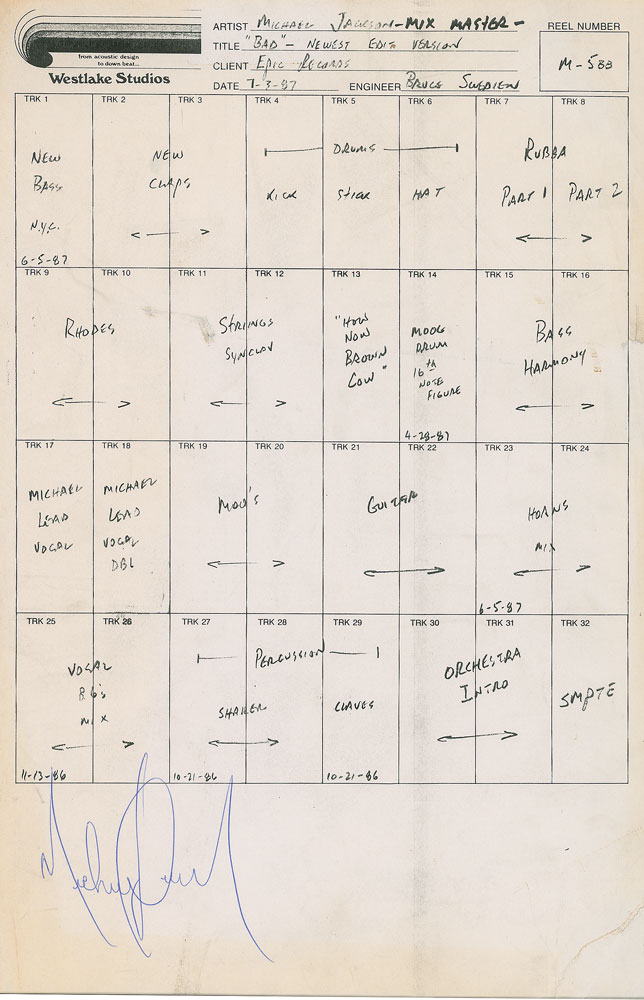 from acoustic design
to down beat...
Westlake Studios
ARTIST MICHAEL JACKSON - MIX MASTER -
TITLE "BAD" - NEWEST EDIT VERSION
CLIENT EPIC RECORDS
DATE 7-3-87 ENGINEER BRUCE SWEDIEN
REEL NUMBER
M-588
TRK 1 TRK 2 TRK 3 TRK 4 TRK 5 TRK 6 TRK 7 TRK 8
NEW
BASS
N.Y.C.
6-5-87
NEW
CLAPS
DRUMS
KICK STICK HAT
RUBBA
PART 1 PART 2
TRK 9 TRK 10 TRK 11 TRK 12 TRK 13 TRK 14 TRK 15 TRK 16
RHODES
STRIINGS
SYNCLAV
"HOW
NOW
BROWN
COW"
MOOG
DRUM
16th
NOTE
FIGURE
4-28-87
BASS
HARMONY
TRK 17 TRK 18 TRK 19 TRK 20 TRK 21 TRK 22 TRK 23 TRK 24
MICHAEL
LEAD
VOCAL
MICHAEL
LEAD
VOCAL
DBL
MOO'S
GUITER
HORNS
MIX
6-5-87
TRK 25 TRK 26 TRK 27 TRK 28 TRK 29 TRK 30 TRK 31 TRK 32
VOCAL
BG's
MIX
11-13-86
PERCUSSION
SHAKER
10-21-86
CLAVES
10-21-86
ORCHESTRA
INTRO
SMPTE